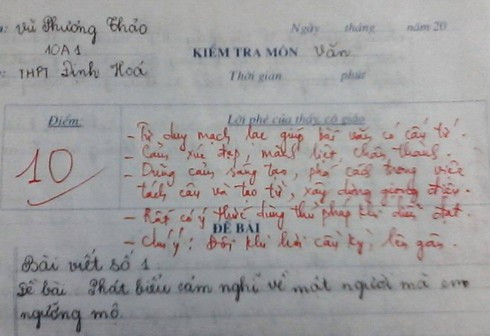 : Vũ Phương Thảo
Ngày tháng năm 20
10A1
KIỂM TRA MÔN Văn
: THPT Định Hoá
Thời gian phút
Điểm
Lời phê của thầy, cô giáo
10
- Tư duy mạch lạc giúp bài văn có cấu tứ.
- Cảm xúc đẹp, mãnh liệt, chân thành.
- Dũng cảm, sáng tạo, phá cách trong việc
tách câu và tạo từ, xây dựng giọng điệu.
- Rất có ý thức dùng thủ pháp khi diễn đạt.
- Chú ý: Đôi khi hơi cầu kỳ, lên gân.
ĐỀ BÀI
Bài viết số 1
Đề bài Phát biểu cảm nghĩ về một người mà em
ngưỡng mộ.